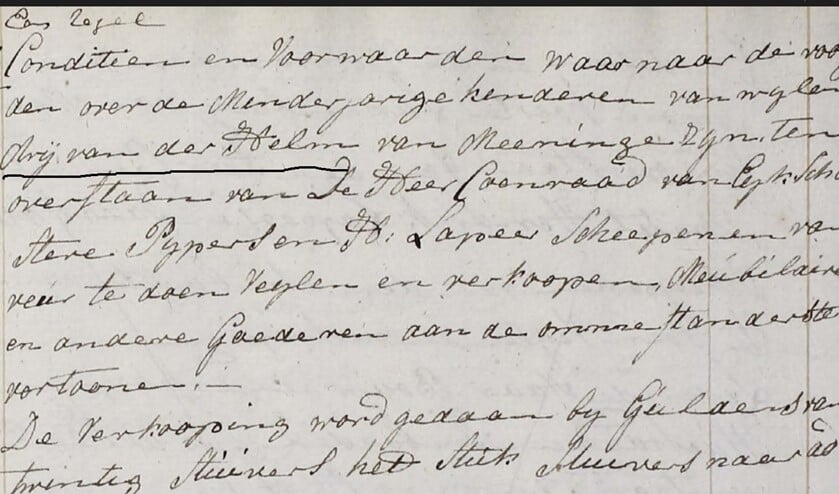 Een Zegel
Conditien en Voorwaarden waar naar de voog
den over de Minderjarige kinderen van wylen
Arij van der Helm van Meeninge Zyn, ten
overstaan van De Heer Coenraad van Eyk Scho
Pypers en H: Lapeer Scheepenen van
te doen Veylen en verkoopen, Meubilaire
en andere Goederen aan de omme standers te
vertoone :—
De Verkooping word gedaan by Guldens van
twintig Stuivers het Stuk Stuivers naar